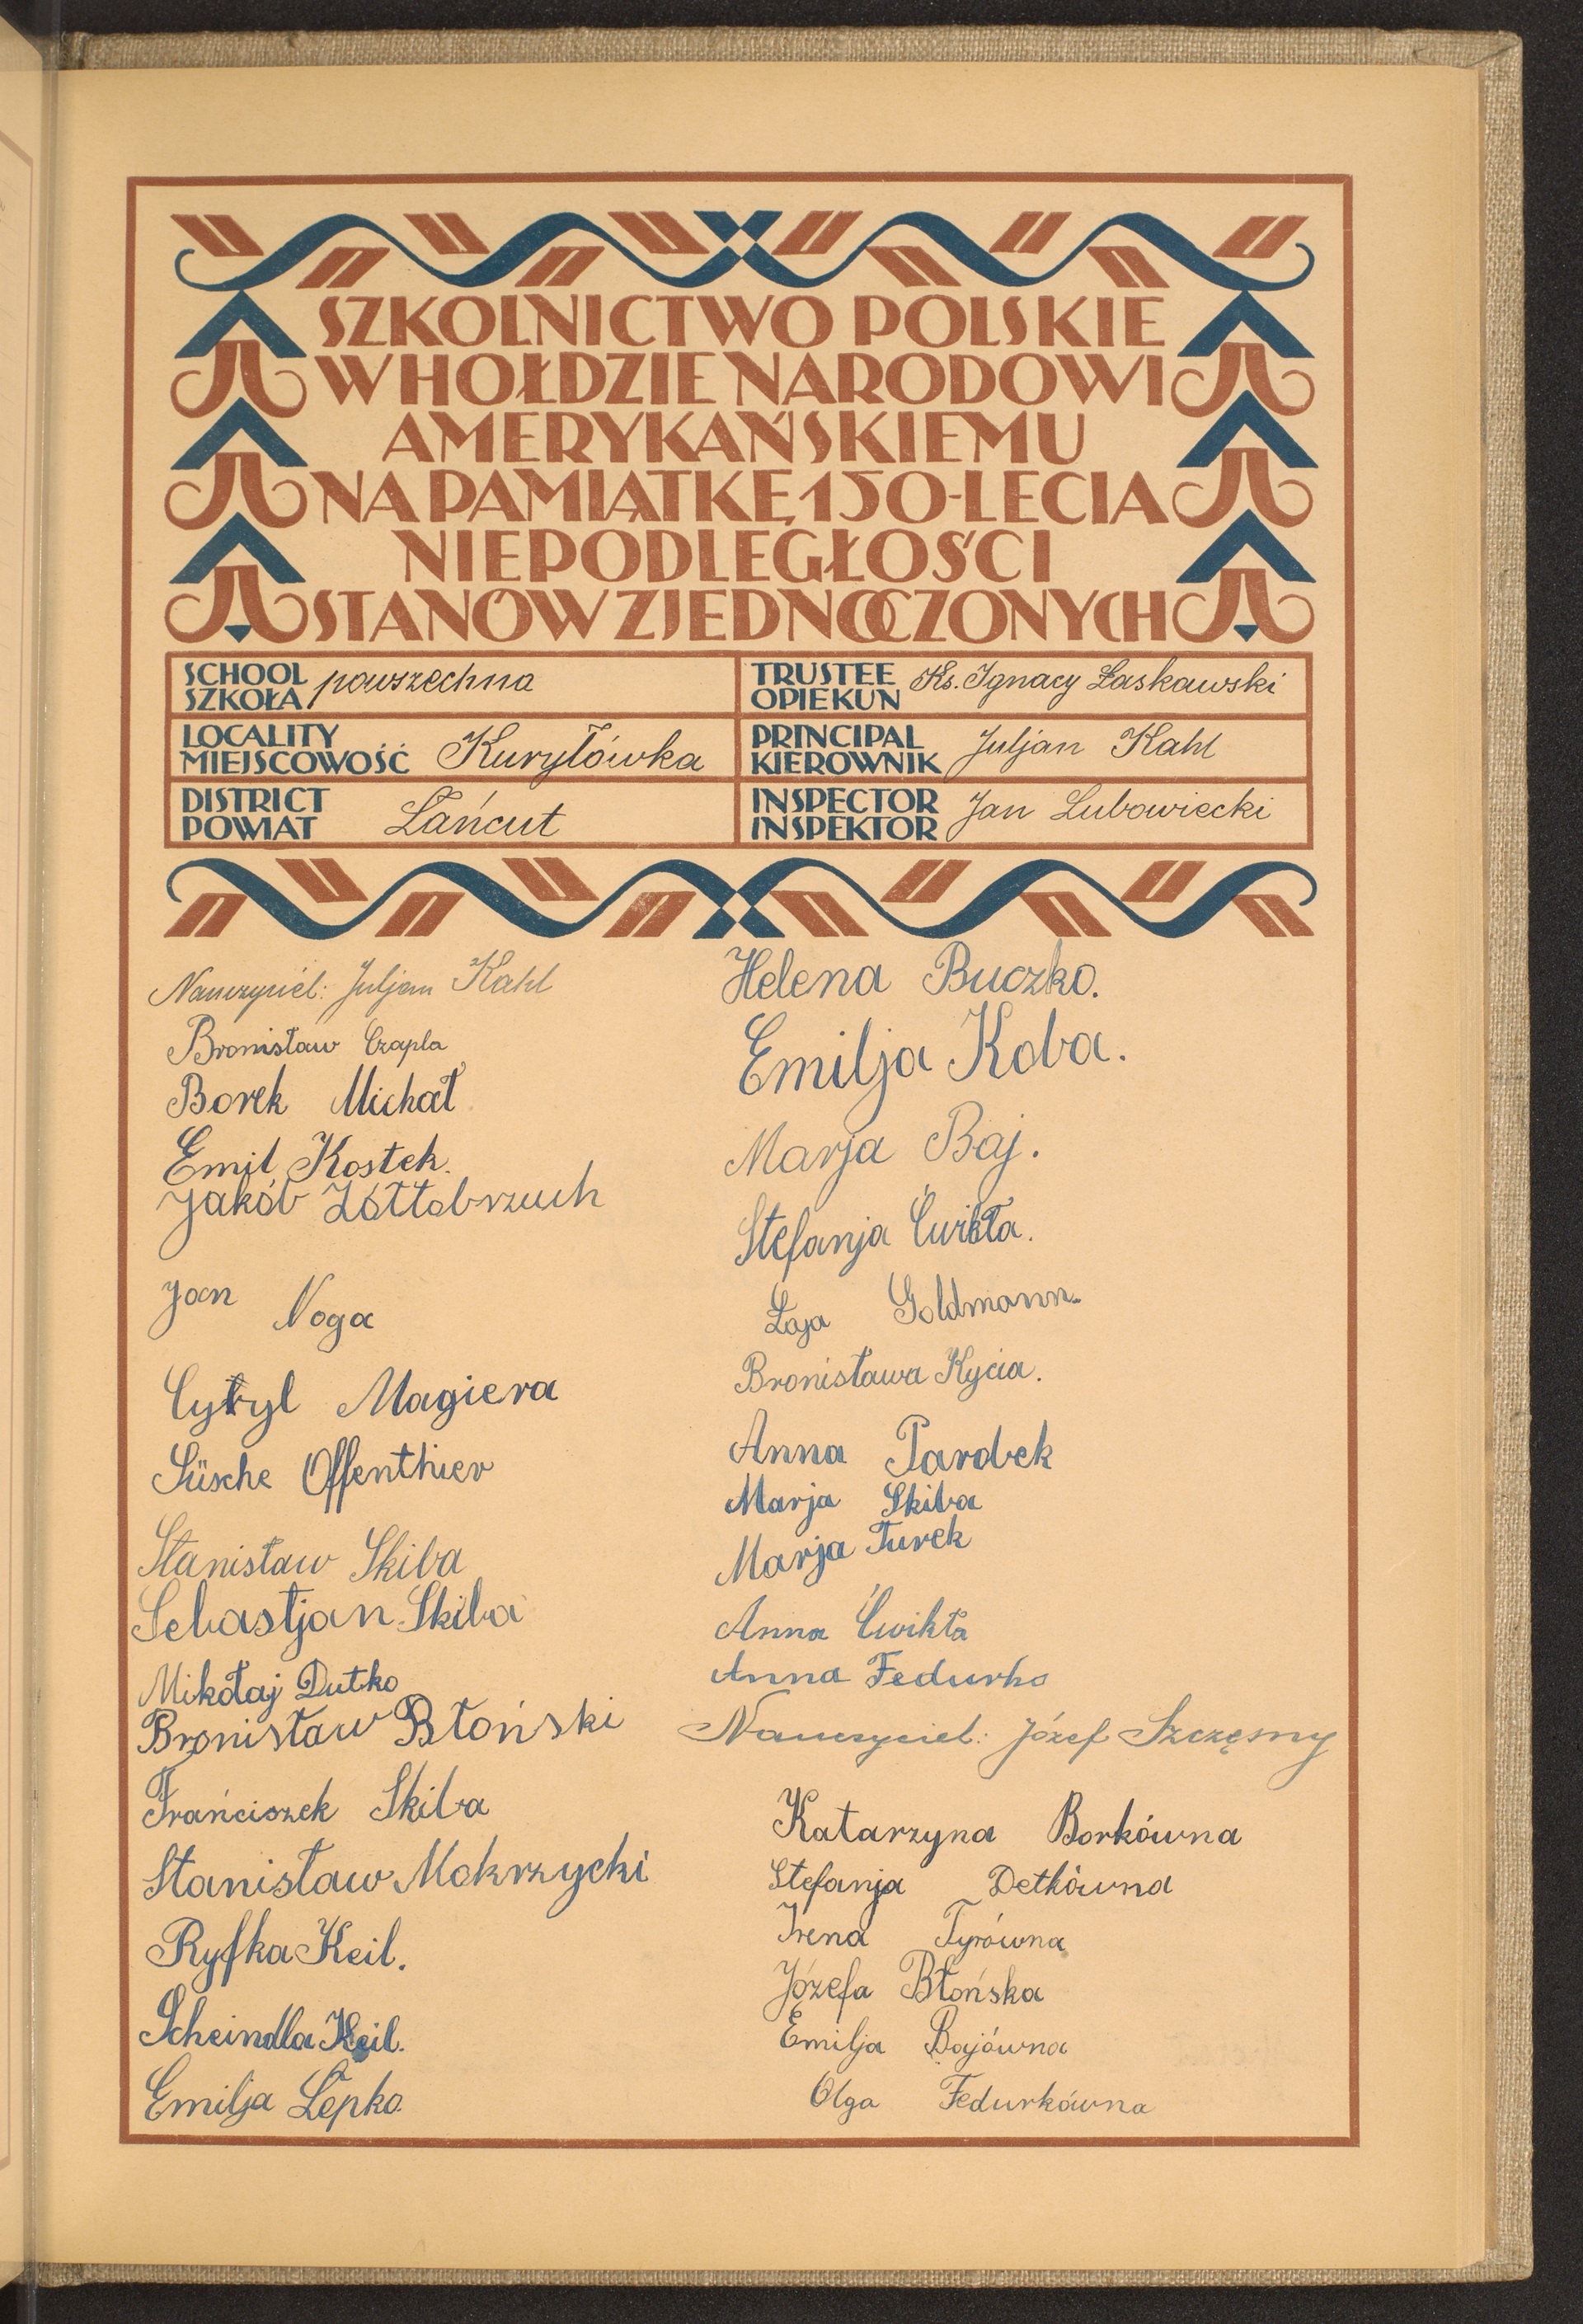 SZKOLNICTWO POLSKIE
W HOŁDZIE NARODOWI
AMERYKAŃSKIEMU
NA PAMIĄTKĘ 150-LECIA
NIEPODLEGŁOŚCI
STANÓW ZJEDNOCZONYCH
SCHOOL
SZKOŁA powszechna
TRUSTEE
OPIEKUN Ks. Ignacy Łaskawski
LOCALITY
MIEJSCOWOŚĆ Kuryłówka
PRINCIPAL
KIEROWNIK Juljan Kahl
DISTRICT
POWIAT Łańcut
INSPECTOR
INSPEKTOR Jan Lubowiecki
Nauczyciel: Juljan Kahl
Bronisław Czapla
Borek Michał
Emil Kostek.
Jakób Żółtobrzuch
Jan Noga
Cyryl Magiera
Süsche Offenthier
Stanisław Skiba
Sebastjan Skiba
Mikołaj Dutko
Bronisław Błoński
Franciszek Skiba
Stanisław Mokrzycki
Ryfka Keil.
Scheindla Keil.
Emilja Łepko
Helena Buczko.
Emilja Koba.
Marja Baj.
Stefanja Ćwikła.
Łaja Goldmann.
Bronisława Kycia.
Anna Parobek
Marja Skiba
Marja Turek
Anna Ćwikła
Anna Fedurko
Nauczyciel: Józef Szczęsny
Katarzyna Borkówna
Stefanja Detkówna
Irena Tyrówna
Józefa Błońska
Emilja Bajówna
Olga Fedurkówna